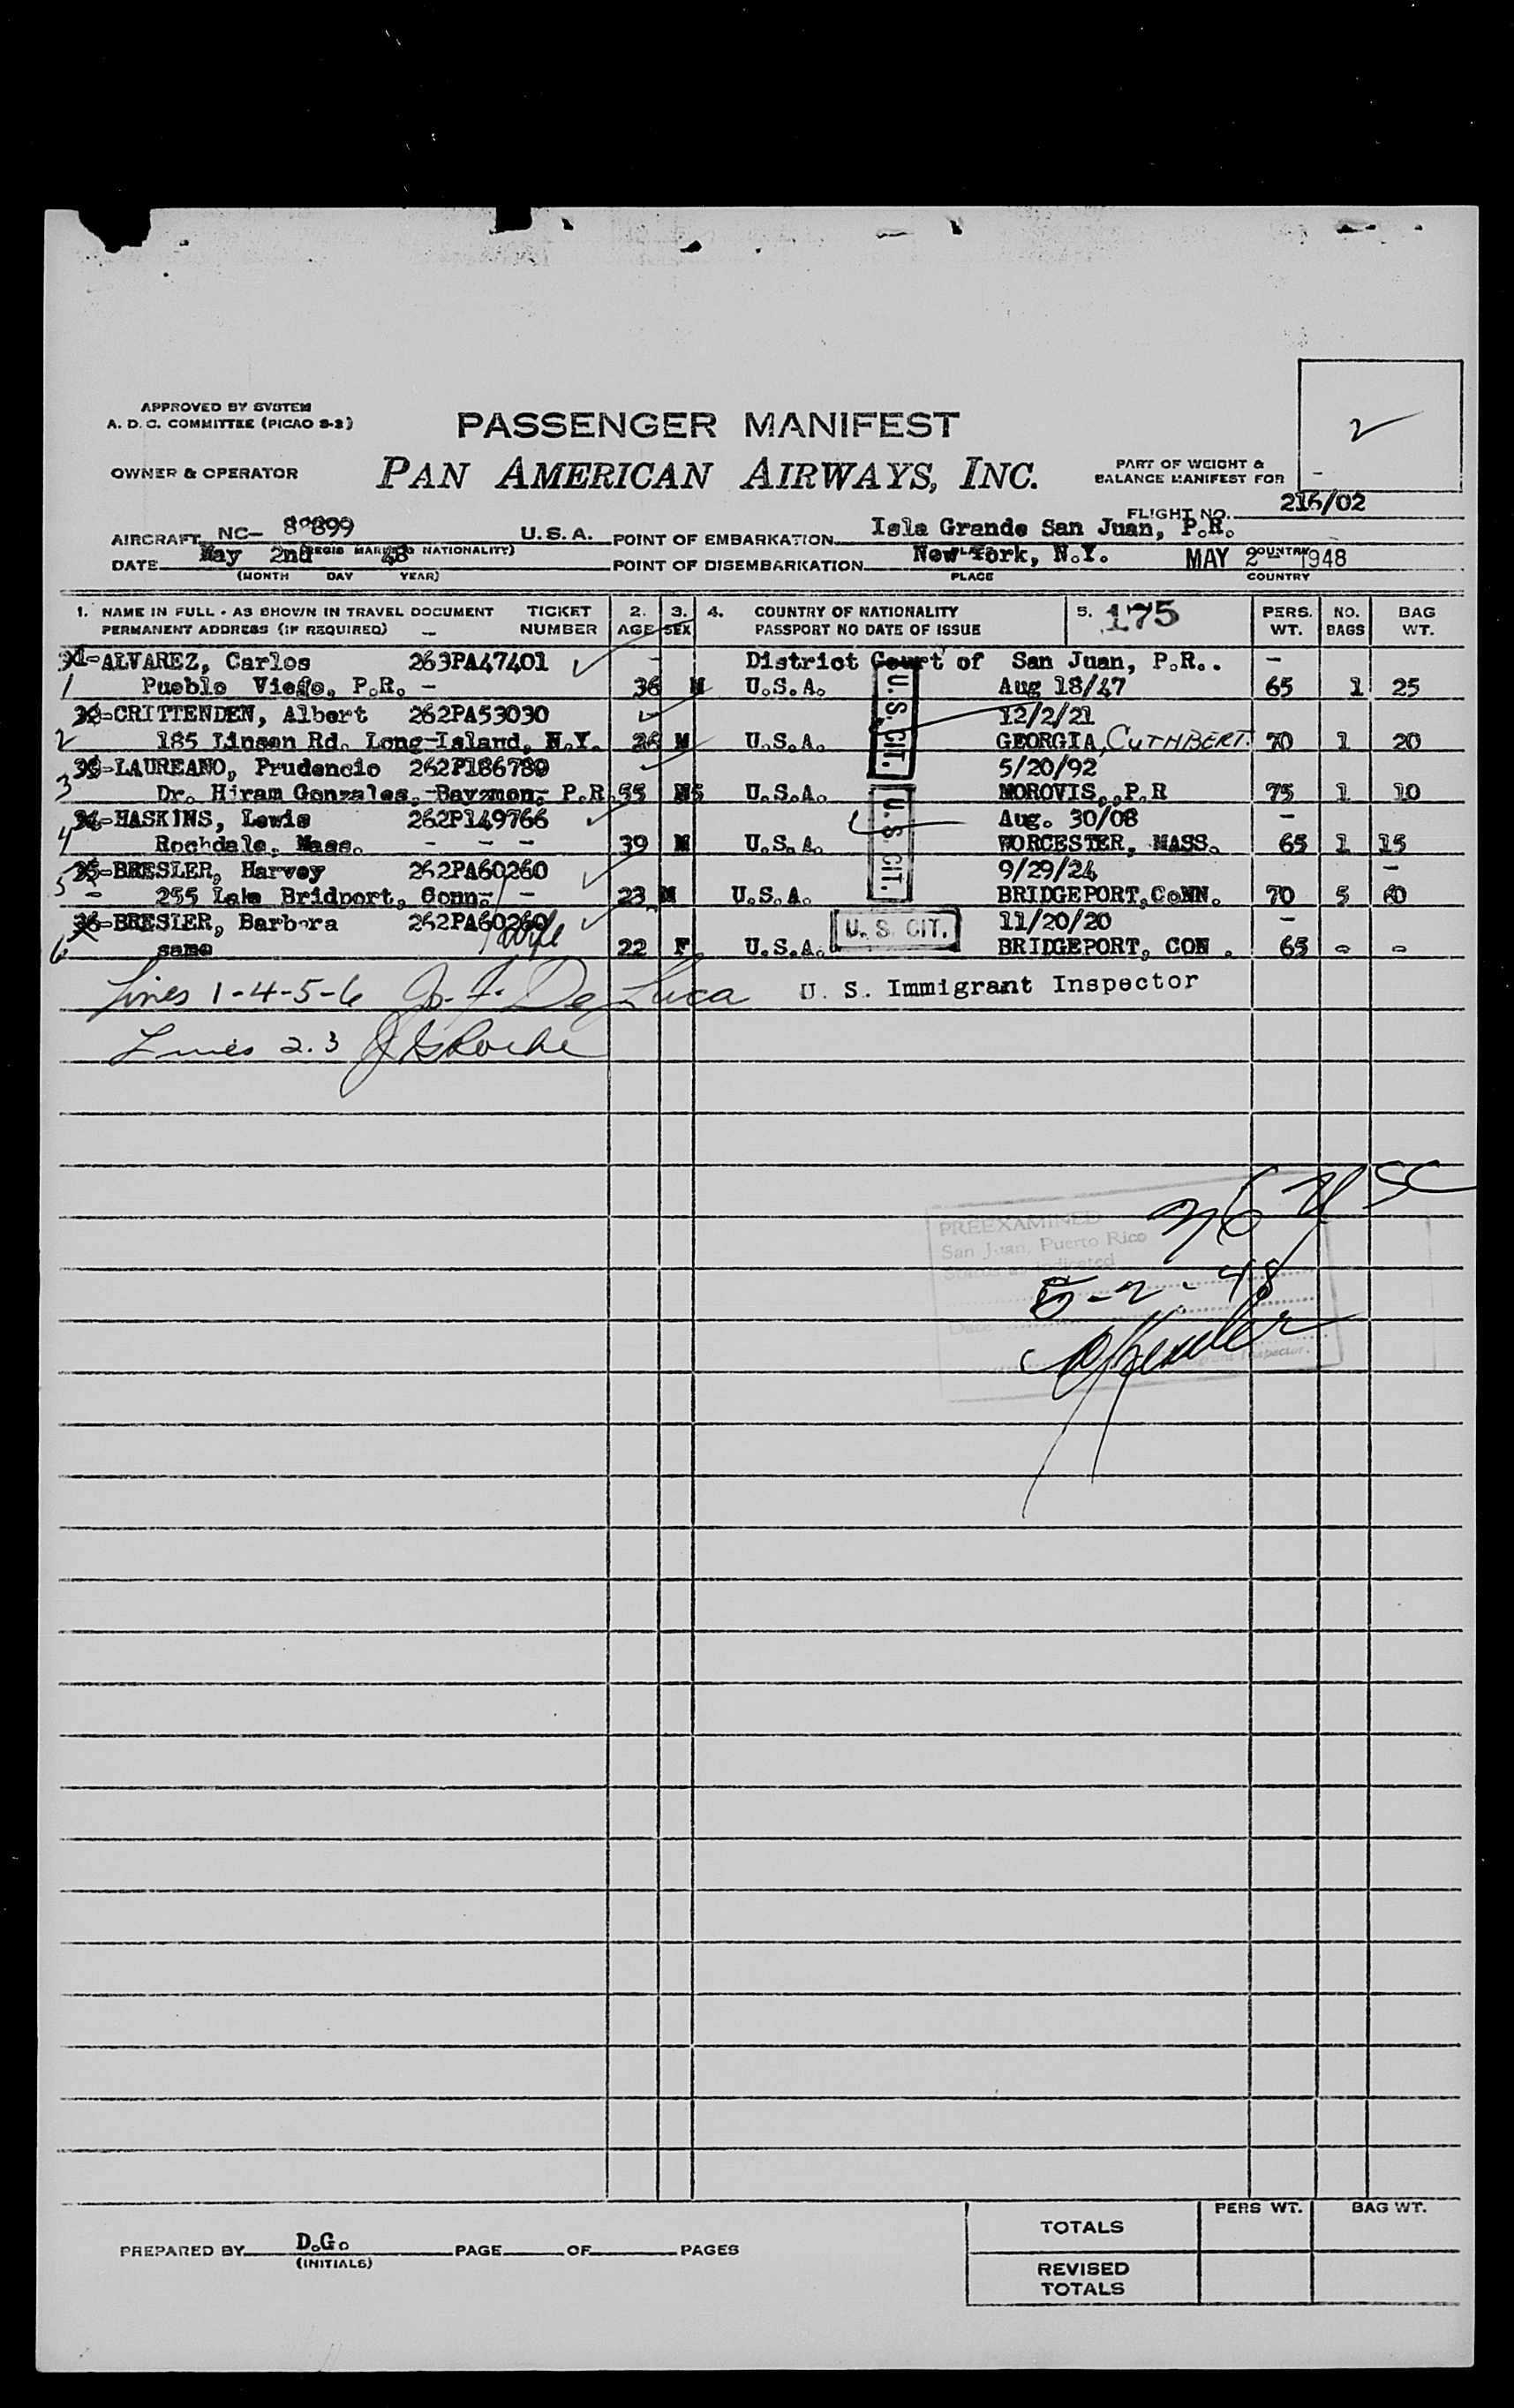 APPROVED BY SYSTEM
A. D. C. COMMITTEE (PICAO 8-2)
PASSENGER MANIFEST
2
OWNER & OPERATOR
PAN AMERICAN AIRWAYS, INC.
PART OF WEIGHT &
BALANCE MANIFEST FOR
FLIGHT NO. 216/02
AIRCRAFT NC- 88899 U.S.A. POINT OF EMBARKATION Isla Grande San Juan, P.R.
DATE May 2nd 48 POINT OF DISEMBARKATION New York, N.Y. MAY 2 1948
(MONTH DAY YEAR) PLACE COUNTRY
1. NAME IN FULL - AS SHOWN IN TRAVEL DOCUMENT TICKET 2. 3. 4. COUNTRY OF NATIONALITY 5. 175 PERS. NO. BAG
PERMANENT ADDRESS (IF REQUIRED) NUMBER AGE SEX PASSPORT NO DATE OF ISSUE WT. BAGS WT.
31-ALVAREZ, Carlos 263PA47401 - District Court of San Juan, P.R.. -
1 Pueblo Viejo, P.R. - 36 M U.S.A. Aug 18/47 65 1 25
32-CRITTENDEN, Albert 262PA53030 12/2/21
2 185 Linson Rd. Long-Island, N.Y. 26 M U.S.A. GEORGIA, CUTHBERT. 70 1 20
33-LAUREANO, Prudencio 262P186789 5/20/92
3 Dr. Hiram Gonzales, Bayamon, P.R. 55 M U.S.A. MOROVIS,,P.R 75 1 10
34-HASKINS, Lewis 262P149766 Aug. 30/08 -
4 Rochdale, Mass. - - - 39 M U.S.A. WORCESTER, MASS. 65 1 15
35-BRESLER, Harvey 262PA60260 9/29/24 -
5 - 255 Lake Bridport, Conn- - 23 M U.S.A. BRIDGEPORT, CONN. 70 5 60
36-BRESLER, Barbara 262PA60260 wife 11/20/20 -
6 same 22 F U.S.A. BRIDGEPORT, CON . 65 - -
U.S. CIT.
U.S. CIT.
U. S. CIT.
Lines 1-4-5-6 Jo. F. De Luca U. S. Immigrant Inspector
Lines 2.3 Roche
PREEXAMINED
San Juan, Puerto Rico
Status as indicated
36 USC
5-2-48
Date
Immigrant Inspector.
PREPARED BY D.G. PAGE OF PAGES
(INITIALS)
PERS WT. BAG WT.
TOTALS
REVISED
TOTALS